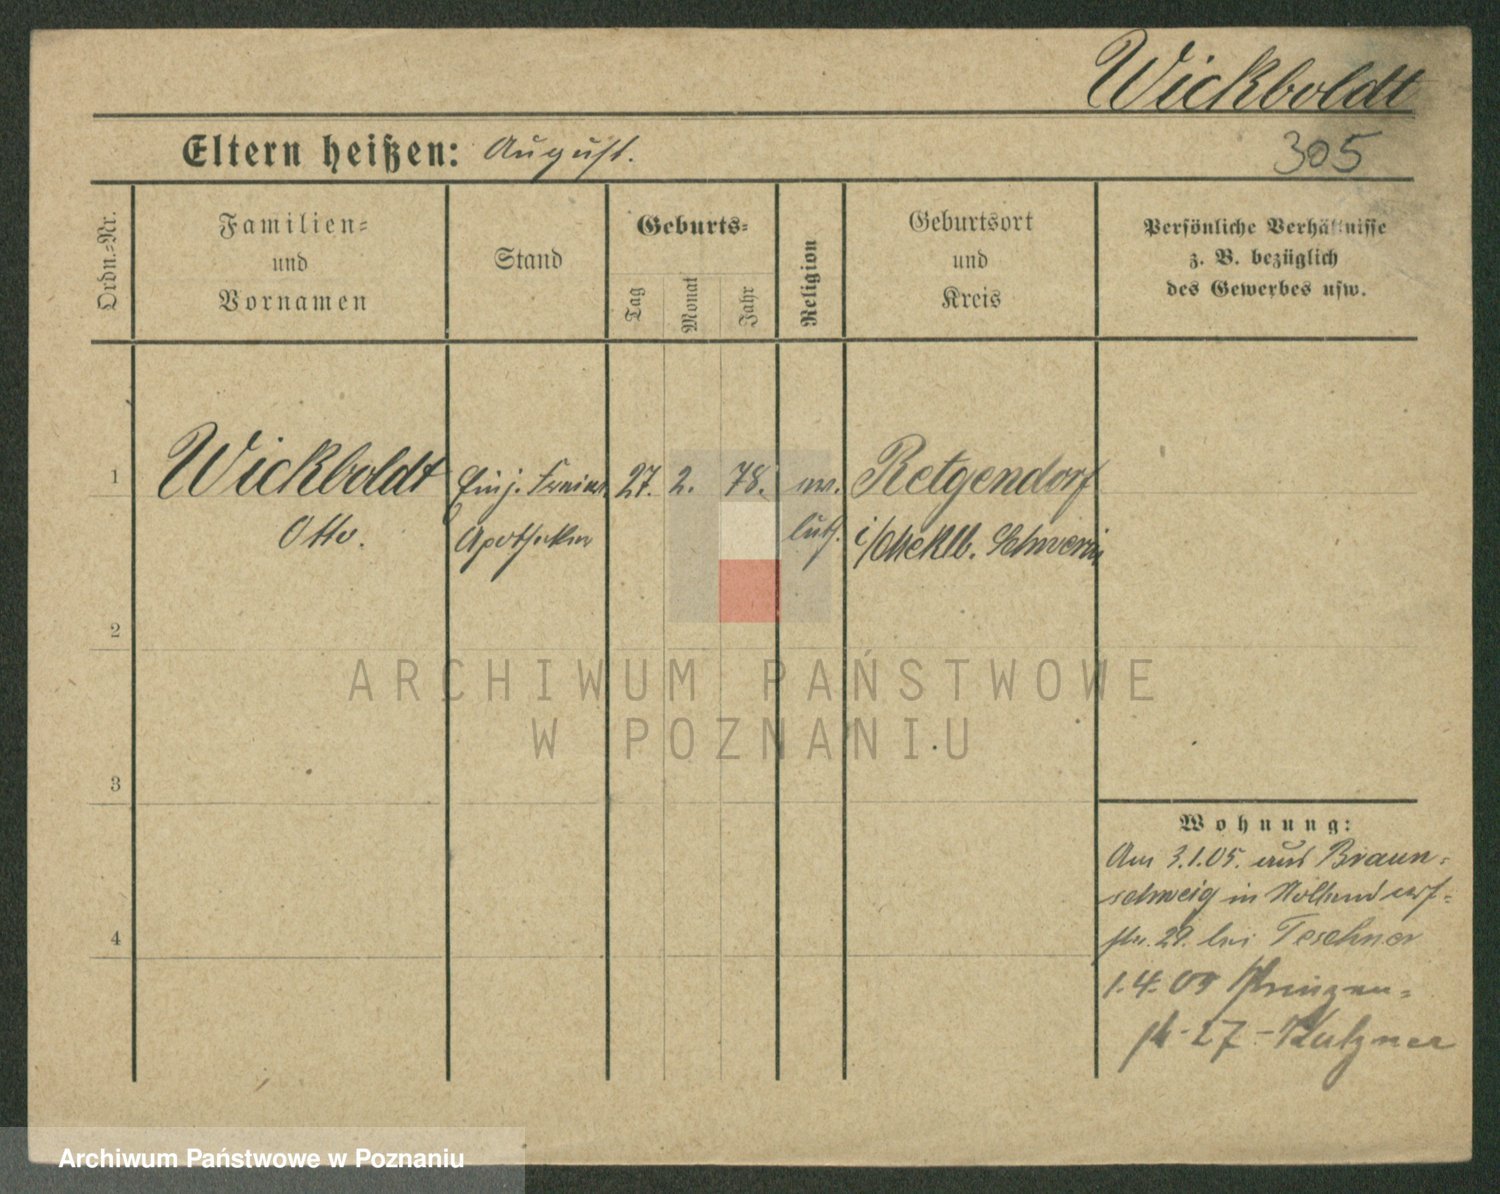 Wickboldt
Eltern heißen: August.
305
Ordn.=Nr.
Familien=
und
Vornamen
Stand
Geburts=
Tag
Monat
Jahr
Religion
Geburtsort
und
Kreis
Persönliche Verhältnisse
z. B. bezüglich
des Gewerbes usw.
1
Wickboldt
Otto.
Einj.
Apotheker
27.
2.
78.
ev.
luth.
Retgendorf
i/Meklb. Schwerin
2
3
4
ARCHIWUM PAŃSTWOWE
W POZNANIU
Wohnung:
Am 3.1.05. aus Braun=
schweig in
str. 29. bei Teschner
1.4.09 Prinzen=
str. 27 - Kutzner
Archiwum Państwowe w Poznaniu